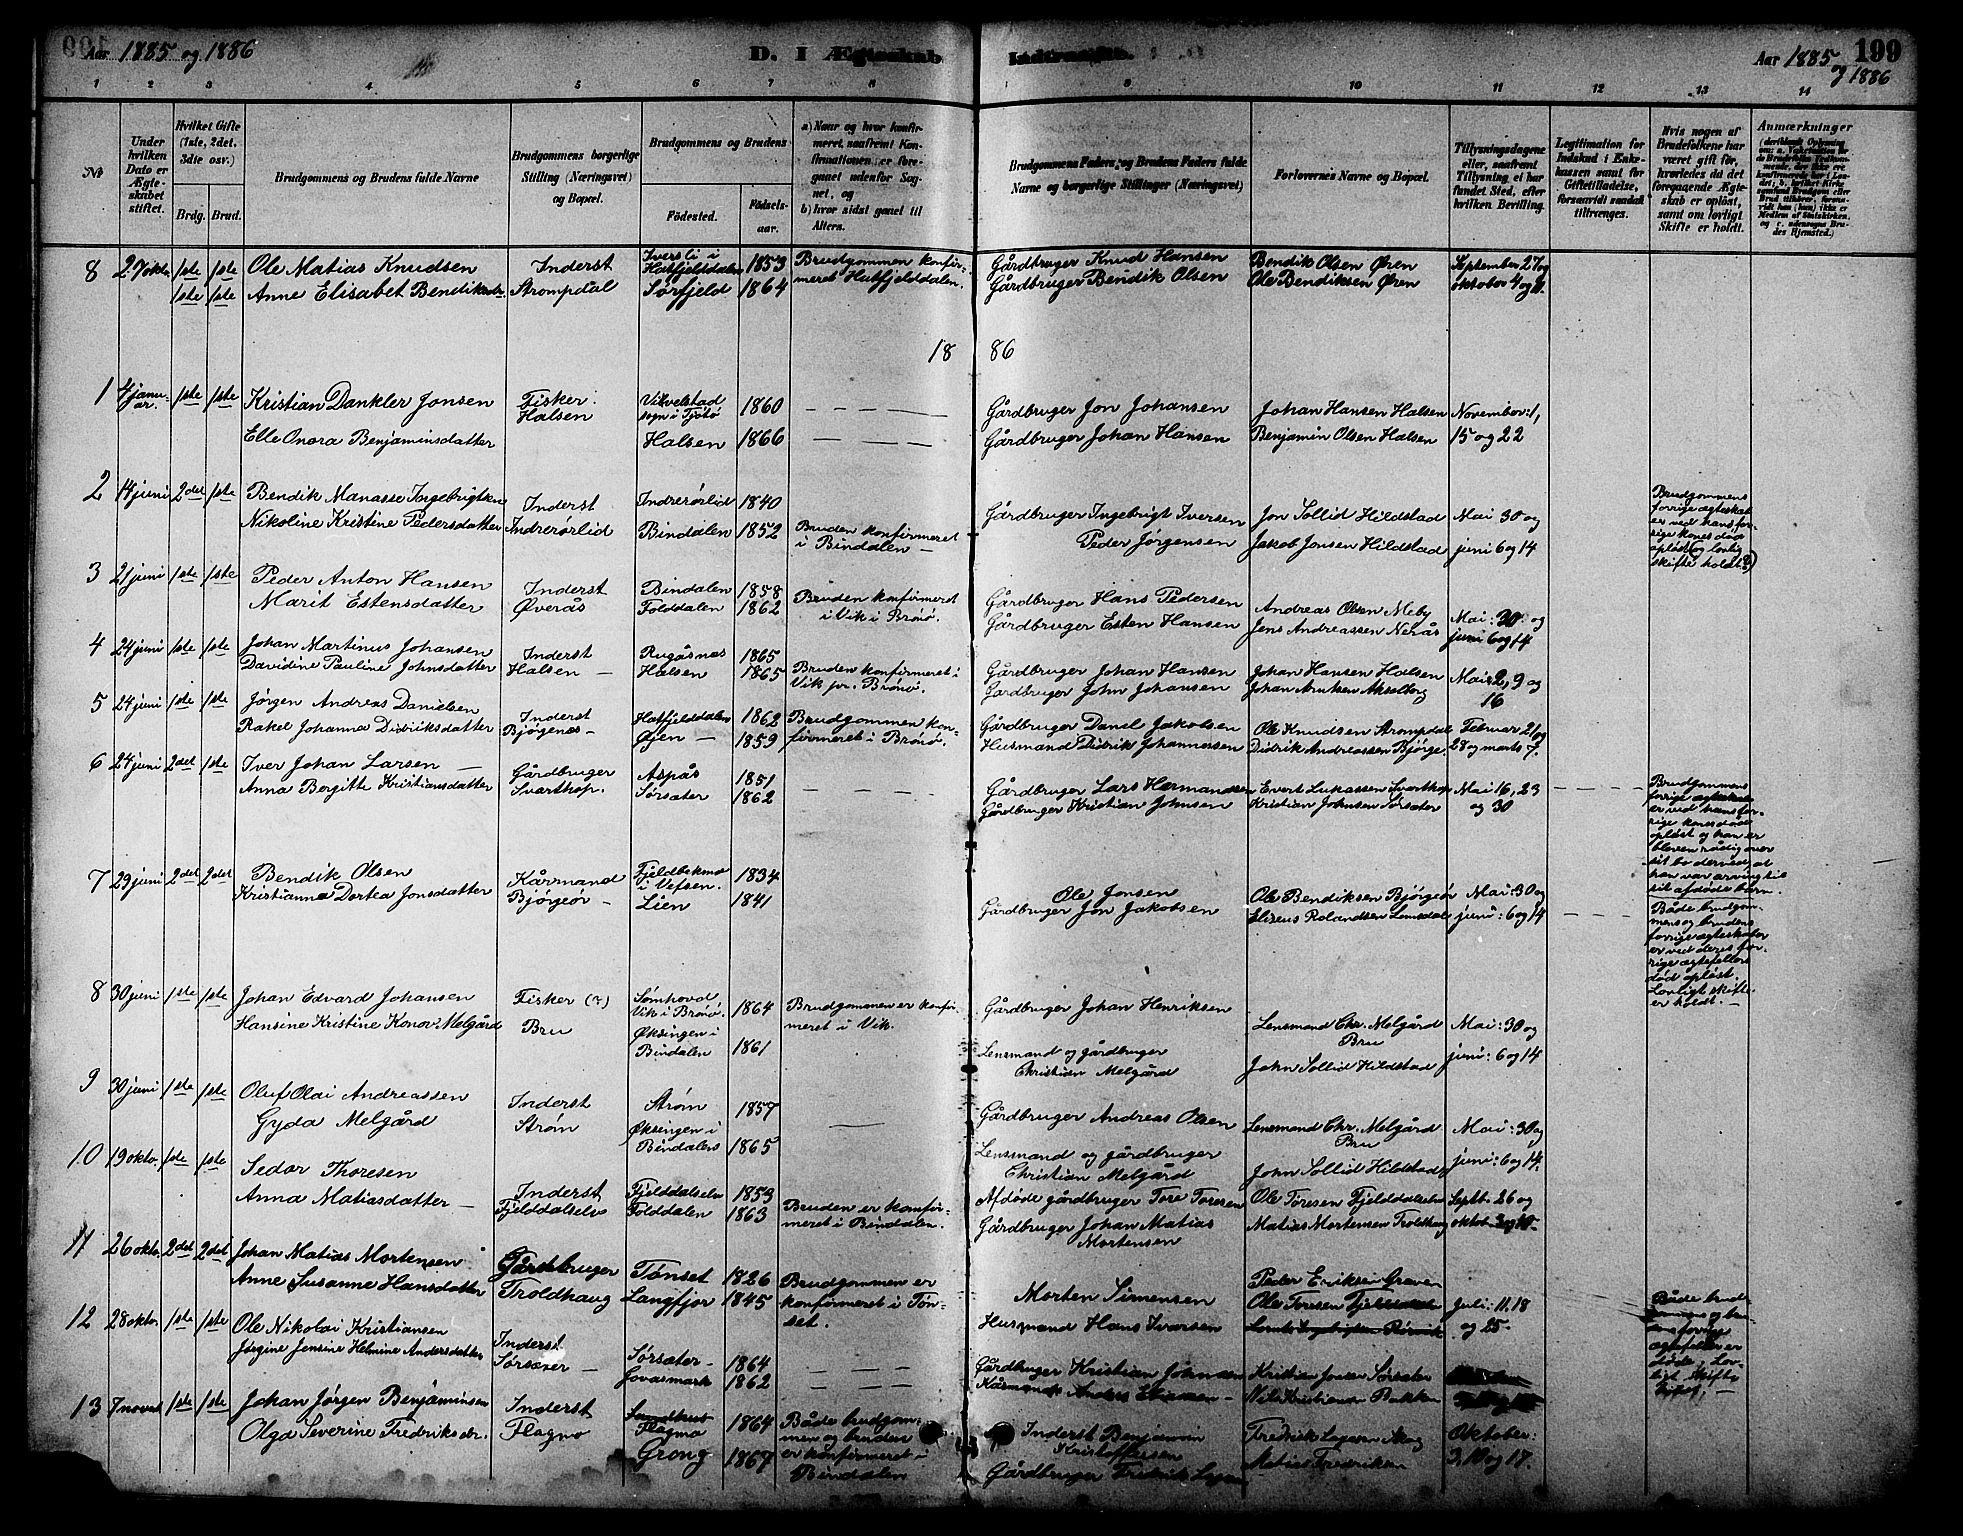 Aar 1885 og 1886
D. I Ægteskab
Aar 1885 og 1886
199
1 2 3 4 5 6 7 8 9 10 11 12 13 14
No
Under hvilken Dato er Ægteskabet stiftet.
Hvilket Gifte (1ste, 2det, 3die osv.)
Brdg. Brud.
Brudgommens og Brudens fulde Navne
Brudgommens borgerlige Stilling (Næringsvei) og Bopæl.
Brudgommens og Brudens
Fødested.
Fødselsaar.
a) Naar og hvor konfirmeret, saafremt Konfirmationen er foregaaet udenfor Sognet, og
b) hvor sidst gaaet til Alters.
Brudgommens Faders, og Brudens Faders fulde Navne og borgerlige Stillinger (Næringsvei)
Forlovernes Navne og Bopæl.
Tillysningsdagene eller, saafremt Tillysning et har fundet Sted, efter hvilken Bevilling.
Legitimation for Indskud i Enkekassen samt for Giftetilladelse, forsaavidt saadan tiltrænges.
Hvis nogen af Brudefolkene har været gift før, hvorledes da det foregaaende Ægteskab er opløst, samt om lovligt Skifte er holdt.
Anmærkninger
8 27 okto 1ste 1ste Ole Matias Knudsen Inderst Iversli i Hatfjeldsdalen 1853 Brudgommen konfirmeret Hatfjelddalen. Gårdbruger Knud Hansen Bendik Olsen Øren September 27 og
1ste 1ste Anne Elisabet Bendiksdr. Strompdal Sørfjeld 1864 Gårdbruger Bendik Olsen Ole Bendiksen Øren oktober 4 og 11.
18 86
1 4 januar. 1ste 1ste Kristian Dankler Jonsen Fisker: Vikvelstad sogn i Tjøtø 1860 Gårdbruger Jon Johansen Johan Hansen Halsen November: 1,
Elle Onora Benjaminsdatter Halsen Halsen 1866 Gårdbruger Johan Hansen Benjamin Olsen Halsen 15 og 22
2 14 juni 2det 1ste Bendik Manasse Ingebrigtsen Inderst Indrerørlid 1840 Gårdbruger Ingebrigt Iversen Jon Sollid Hildstad Mai 30 og
Nikoline Kristine Pedersdatter Indrerørlid Bindalen 1852 Bruden konfirmeret i Bindalen Peder Jørgensen Jakob Jonsen Hildstad juni 6 og 14
Brudgommens forrige ægteskab er ved hans forrige kones død opløst (og lovlig skifte holdt?)
3 21 juni 1ste 1ste Peder Anton Hansen Inderst Bindalen 1858 Gårdbruger Hans Pedersen Andreas Olsen Meby Mai: 30 og
Marit Estensdatter Øverås Folddalen 1862 Bruden konfirmeret i Vik i Brönö. Gårdbruger Esten Hansen Jens Andreassen Nerås juni 6 og 14
4 24 juni 1ste 1ste Johan Martinus Johansen Inderst Rugåsnes 1865 Gårdbruger Johan Hansen Johan Hansen Halsen Mai: 2, 9 og
Davidine Pauline Johnsdatter Halsen Halsen 1865 Bruden konfirmeret i Vik pr. Brönö. Gårdbruger John Johansen 16
5 24 juni 1ste 1ste Jørgen Andreas Danielsen Inderst Hatfjelddalen 1862 Brudgommen konfirmeret i Brönö. Gårdbruger Danel Jakobsen Ole Knudsen Strompdal Februar 21 og
Rakel Johanna Didriksdatter Bjørgenes Øyen 1859 Husmand Didrik Johannessen Didrik Andreassen Bjørge. 28 og marts 7.
6 24 juni 2det 1ste Iver Johan Larsen Gårdbruger Aspås 1851 Gårdbruger Lars Hermandsen Evert Lukassen Svarthop Mai 16, 23
Anna Bergitte Kristiansdatter Svarthop. Sørsæter 1862 Gårdbruger Kristian Johnsen Kristian Johnsen Sørsæter og 30
Brudgommens forrige ægteskab er ved hans forrige kones død opløst og han er bleven rådig over sit bo derved, at han var arving til sit afdøde barn.
7 29 juni 2det 2det Bendik Olsen Kårmand Fjeldbekmo i Vefsen. 1834 Ole Jonsen Ole Bendiksen Bjørgeør Mai: 30 og
Kristianna Dortea Jonsdatter Bjørgeør Lien 1841 Gårdbruger Jon Jakobsen Eliseus Rolandsen juni: 6 og 14
Både brudgommens og brudens forrige ægteskaber er ved deres forrige ægtefellers død opløst. Lovligt skifte er holdt.
8 30 juni 1ste 1ste Johan Edvard Johansen Fisker (?) Sømhovd Vik i Brönö 1864 Brudgommen er konfirmeret i Vik. Gårdbruger Johan Henriksen Lensmand Chr. Melgård Bru Mai: 30 og
Hansine Kristine Konov Melgård Bru Øksingen i Bindalen 1861 Lensmand og gårdbruger Christian Melgård John Sollid Hildstad juni: 6 og 14
9 30 juni 1ste 1ste Oluf Olai Andreassen Inderst Strøm 1857 Gårdbruger Andreas Olsen Lensmand Chr. Melgård Bru Mai: 30 og
Gyda Melgård Strøm Øksingen i Bindalen 1865 Lensmand og gårdbruger Christian Melgård John Sollid Hildstad juni: 6 og 14.
10 19 okto. 1ste 1ste Sedor Thoresen Inderst Fjelddalselv 1853 Afdøde gårdbruger Tore Toresen Ole Toresen Fjelddalselv Septb. 26 og
Anna Matiasdatter Fjelddalselv Folddalen 1863 Bruden er konfirmeret i Bindalen. Gårdbruger Johan Matias Mortensen Matias Mortensen Troldhaug oktob. 3 og 10.
11 26 okto. 2det 2det Johan Matias Mortensen Gårdbruger Tønset 1826 Brudgommen er konfirmeret i Tønset. Morten Simensen Peder Eriksen
Anne Susanne Hansdatter Troldhaug Langfjor 1845 Husmand Hans Iversen Ole Toresen Juli: 11. 18 og 25.
Både brudens forrige ægtefeller er døde. Lovligt skifte
12 28 okto. 1ste 1ste Ole Nikolai Kristiansen Inderst Sørsæter 1864 Gårdbruger Kristian Johnsen Kristian Jonsen Sørsæter
Jørgine Jensine Helmine Andersdatter 1862 Nils Kristiansen Bakken
13 7 novbr. 1ste 1ste Johan Jørgen Benjaminsen Inderst Flagmo 1864 Både brudgommen og bruden er konfirmeret i Bindalen Inderst Benjamin Kristoffersen Oktober:
Olga Severine Fredriksdr. Flagmo Grong 1867 Gårdbruger Fredrik Matias Fredriksen 3, 10 og 17.